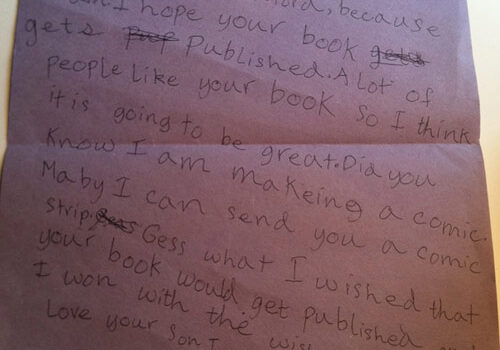 I hope your book, because
gets Published. A lot of
people like your book so I think
it is going to be great. Did you
Know I am makeing a comic.
Maby I can send you a comic
strip. Gess what I wished that
your book would get published and
I won with the wish
Love your son I